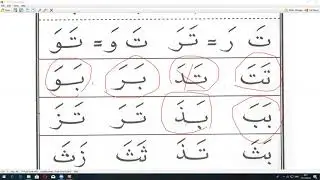 تَ رَ = تَرَ تَ وَ = تَوَ
تَتَ تَدَ بَرَ بَوَ
بَبَ بَذَ تَرَ تَزَ
بَثَ تَذَ ثَثَ زَثَ